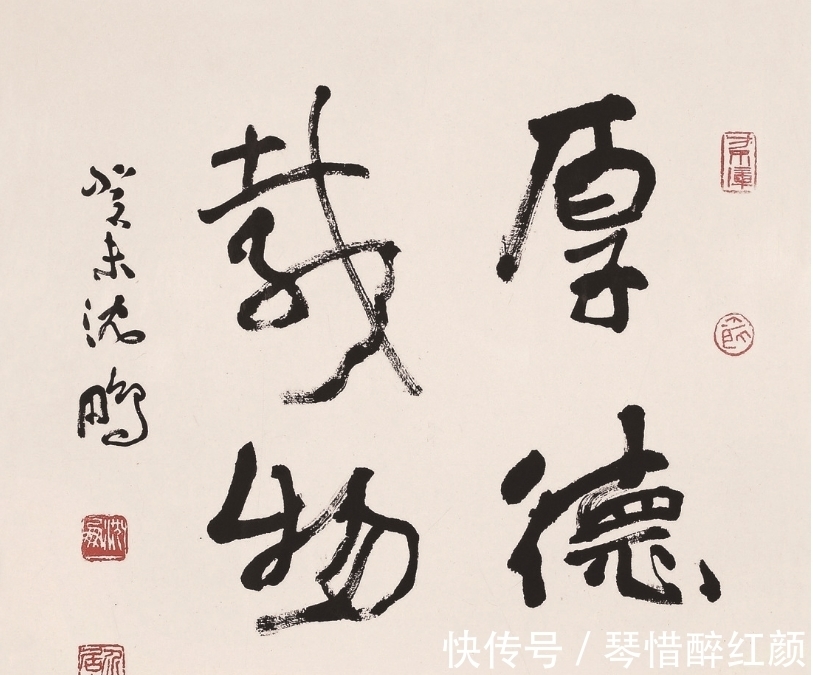 厚德
载物
癸未沈鹏
快传号 / 琴惜醉红颜